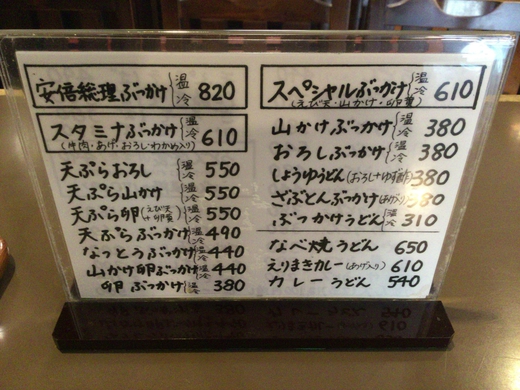 安倍総理ぶっかけ 温 冷 820
スタミナぶっかけ 温 冷 610
(牛肉・あげ・おろし・わかめ入り)
天ぷらおろし 温 冷 550
天ぷら山かけ 温 冷 550
天ぷら卵(えび天+卵黄) 温 冷 550
天ぷらぶっかけ 温 冷 490
なっとうぶっかけ 温 冷 440
山かけ卵ぶっかけ 温 冷 440
卵ぶっかけ 温 冷 380
スペシャルぶっかけ 温 冷 610
(えび天・山かけ・卵黄)
山かけぶっかけ 温 冷 380
おろしぶっかけ 温 冷 380
しょうゆうどん(おろし+ゆず酢) 380
ざぶとんぶっかけ(あげ入り)
ぶっかけうどん 温 冷 310
なべ焼うどん 650
えりまきカレー(あげ入り) 610
カレーうどん 540